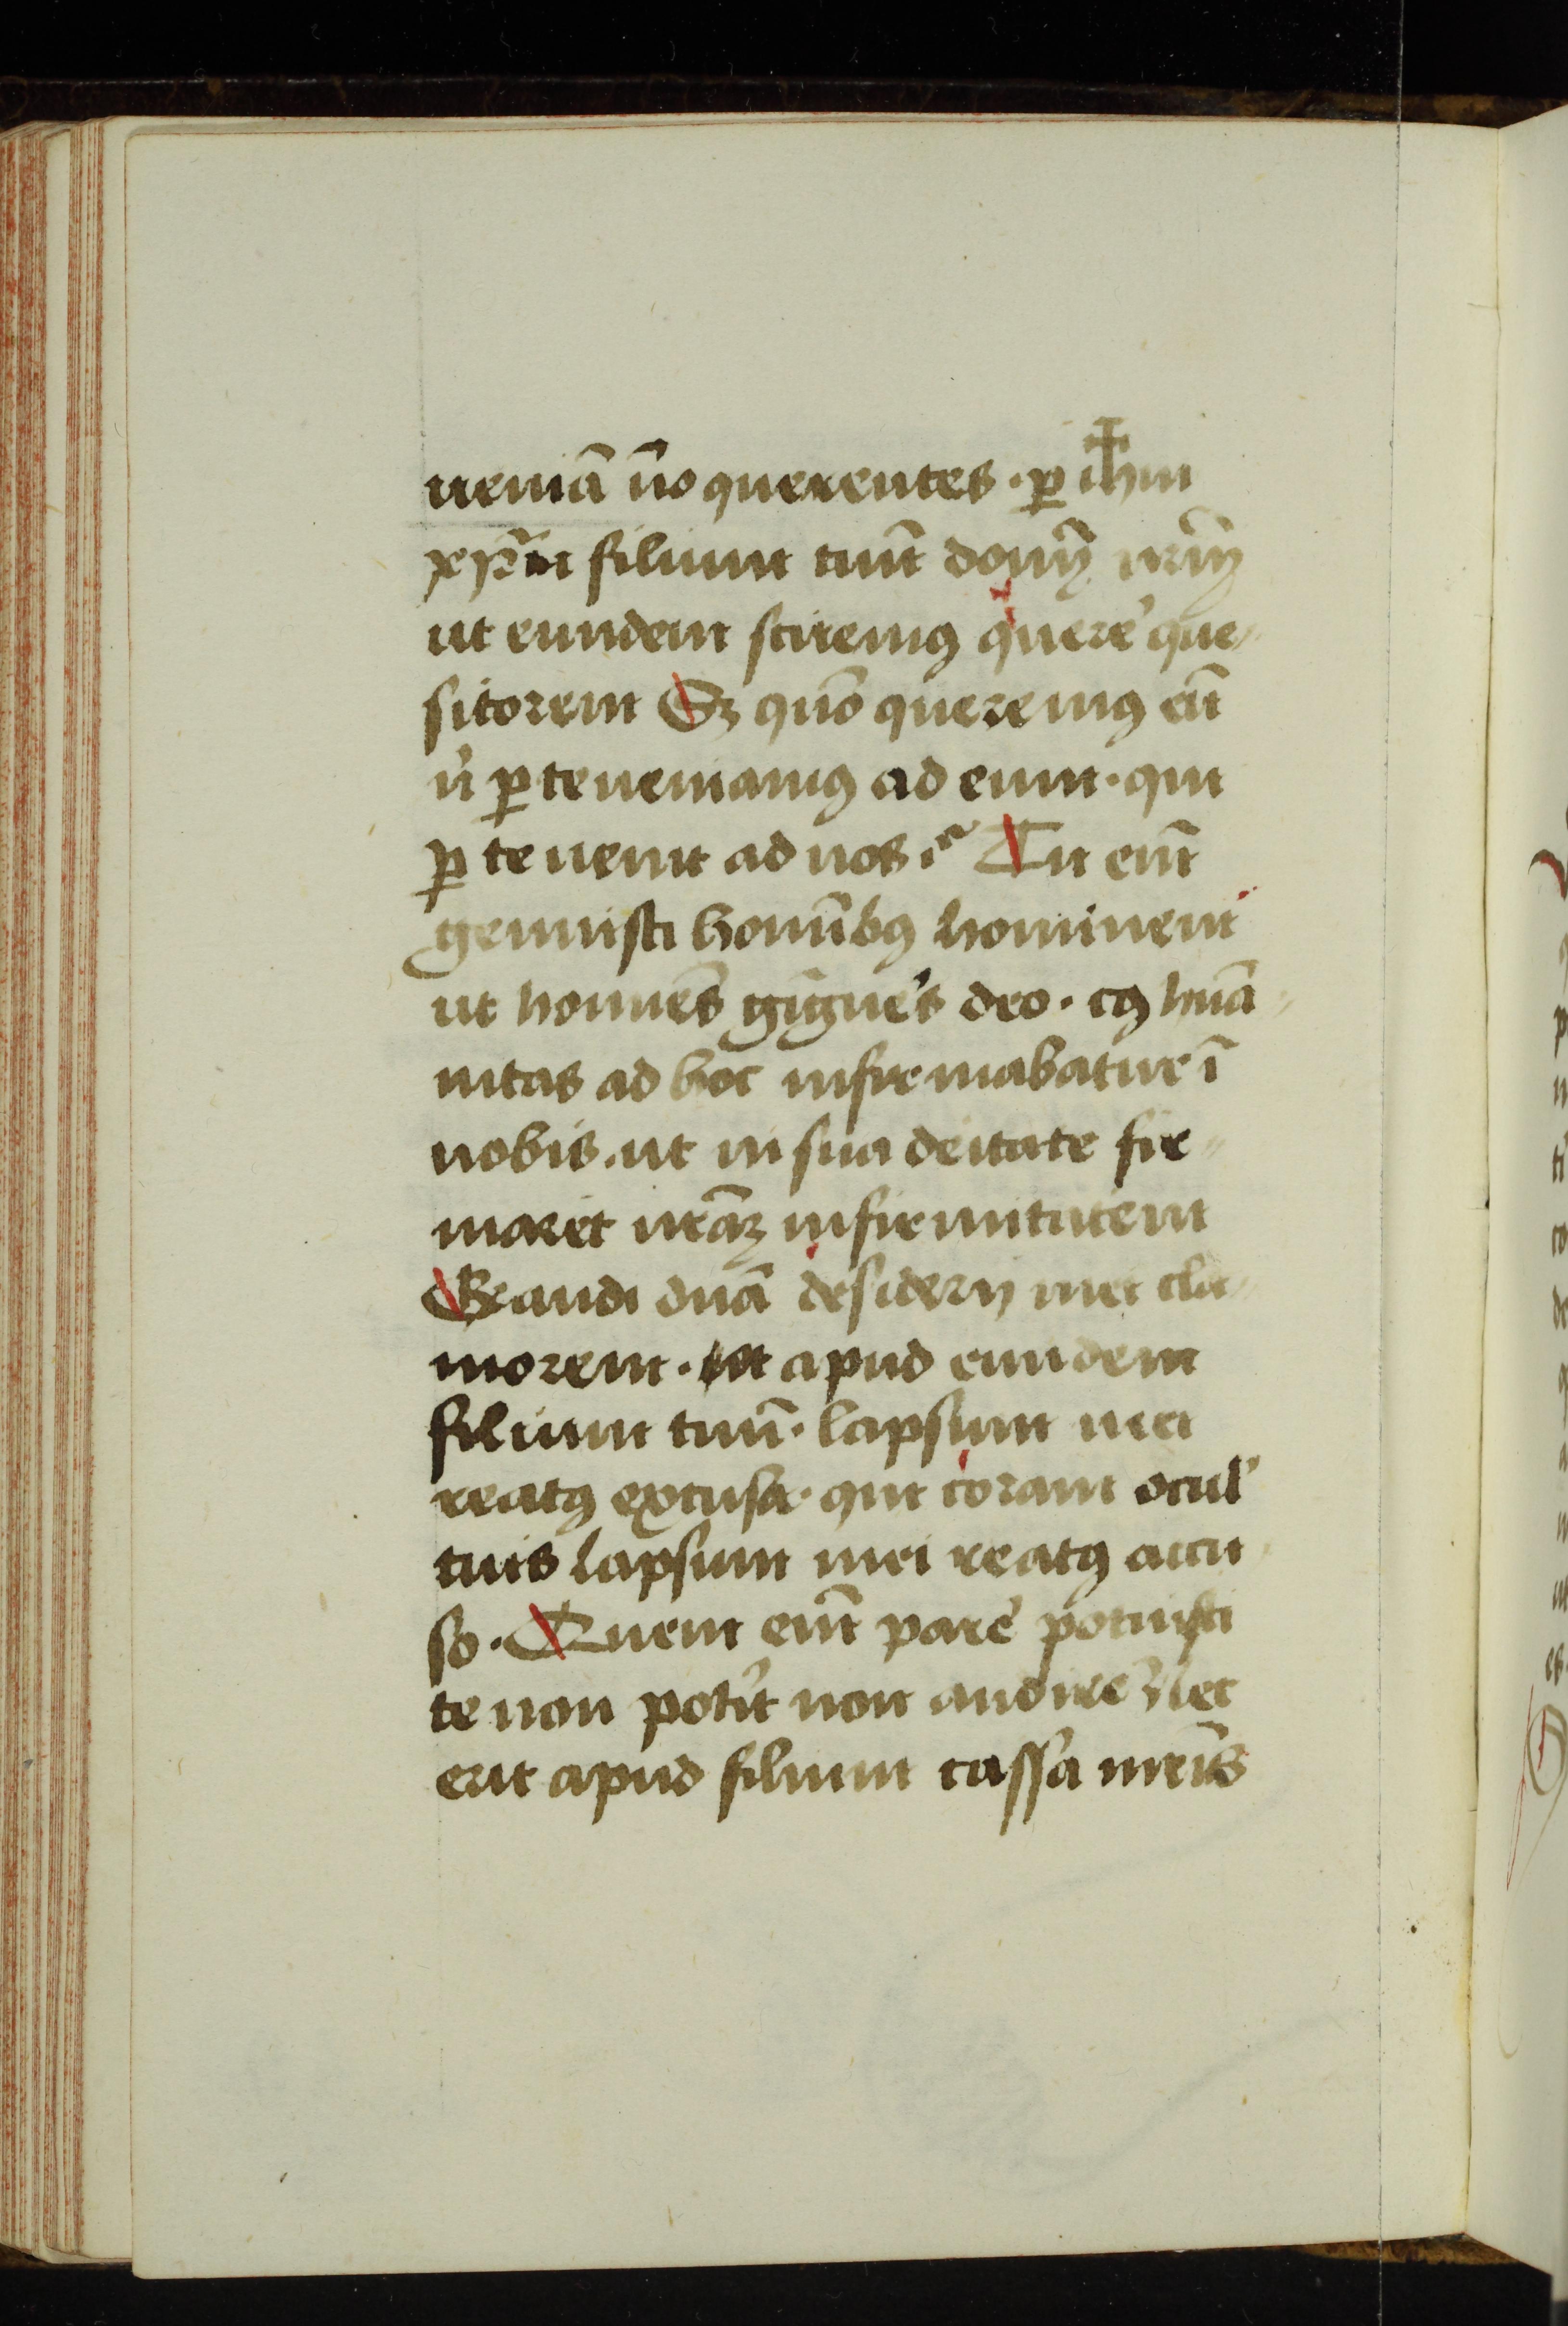 ueniā nō querentes · ꝑ ihm
xp̄m filium tuū domꝫ nrmꝫ
ut eundem sciremꝰ querē que
sitorem Sꝫ quō queremꝰ eū
ū ꝑ te ueniamꝰ ad eum · qui
ꝑ te uenit ad nos ? Tu eni̅
genuisti homībꝰ hominem
ut homīes gigne's deo · cꝰ huā
nitas ad hoc infirmabatur ī
nobis · ut in sua deitate fir
maret nr̄aꝫ infirmitatem
Exaudi dn̄a desiderij mei cla
morem · ut apud eundem
filium tuū · lapsum mei
reatꝰ excusa · qui coram ocul'
tuis lapsum mei reatꝰ accu
so · Quem eni̅ pare' potuisti
te non potit' non audire' Nec
erit apud filium cassa mr̄is